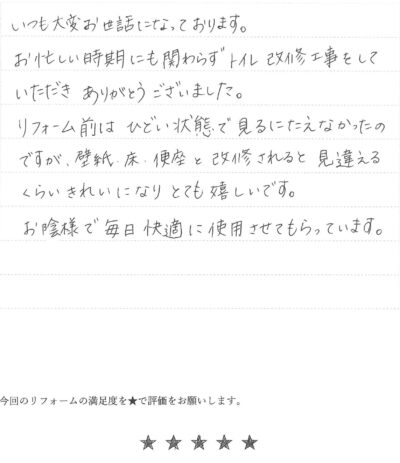 いつも大変お世話になっております。
お忙しい時期にも関わらずトイレ改修工事をして
いただきありがとうございました。
リフォーム前はひどい状態で見るにたえなかったの
ですが、壁紙・床・便座と改修されると見違える
くらいきれいになりとても嬉しいです。
お陰様で毎日快適に使用させてもらっています。
今回のリフォームの満足度を★で評価をお願いします。
★★★★★